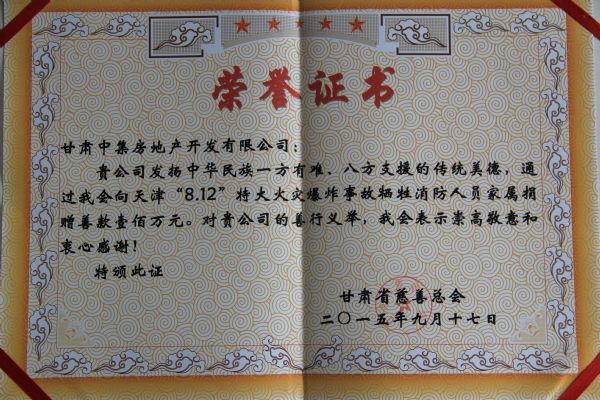 荣誉证书
甘肃中集房地产开发有限公司：
贵公司发扬中华民族一方有难、八方支援的传统美德，通
过我会向天津“8.12”特大火灾爆炸事故牺牲消防人员家属捐
赠善款壹佰万元。对贵公司的善行义举，我会表示崇高敬意和
衷心感谢！
特颁此证
甘肃省慈善总会
二〇一五年九月十七日